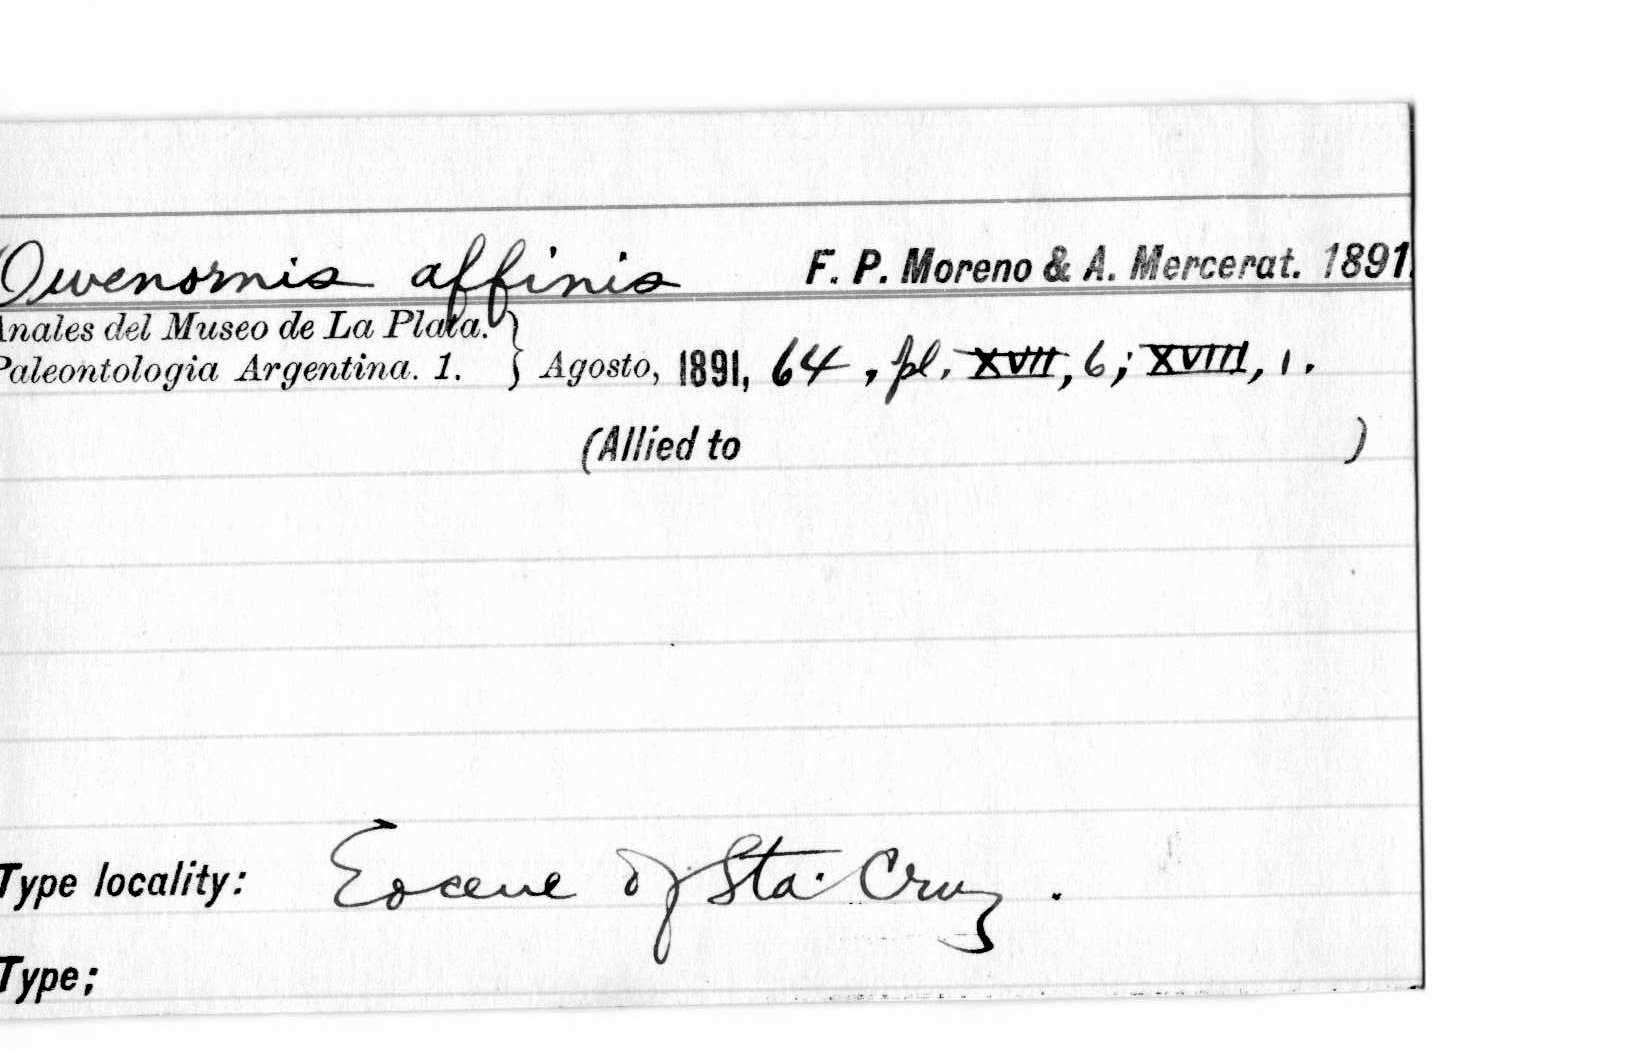 Owenornis affinis F. P. Moreno & A. Mercerat. 1891.
Anales del Museo de La Plata.
Paleontologia Argentina. 1. } Agosto, 1891, 64, pl. XVII, 6; XVIII, 1.
(Allied to )
Type locality: Eocene of Sta. Cruz.
Type;